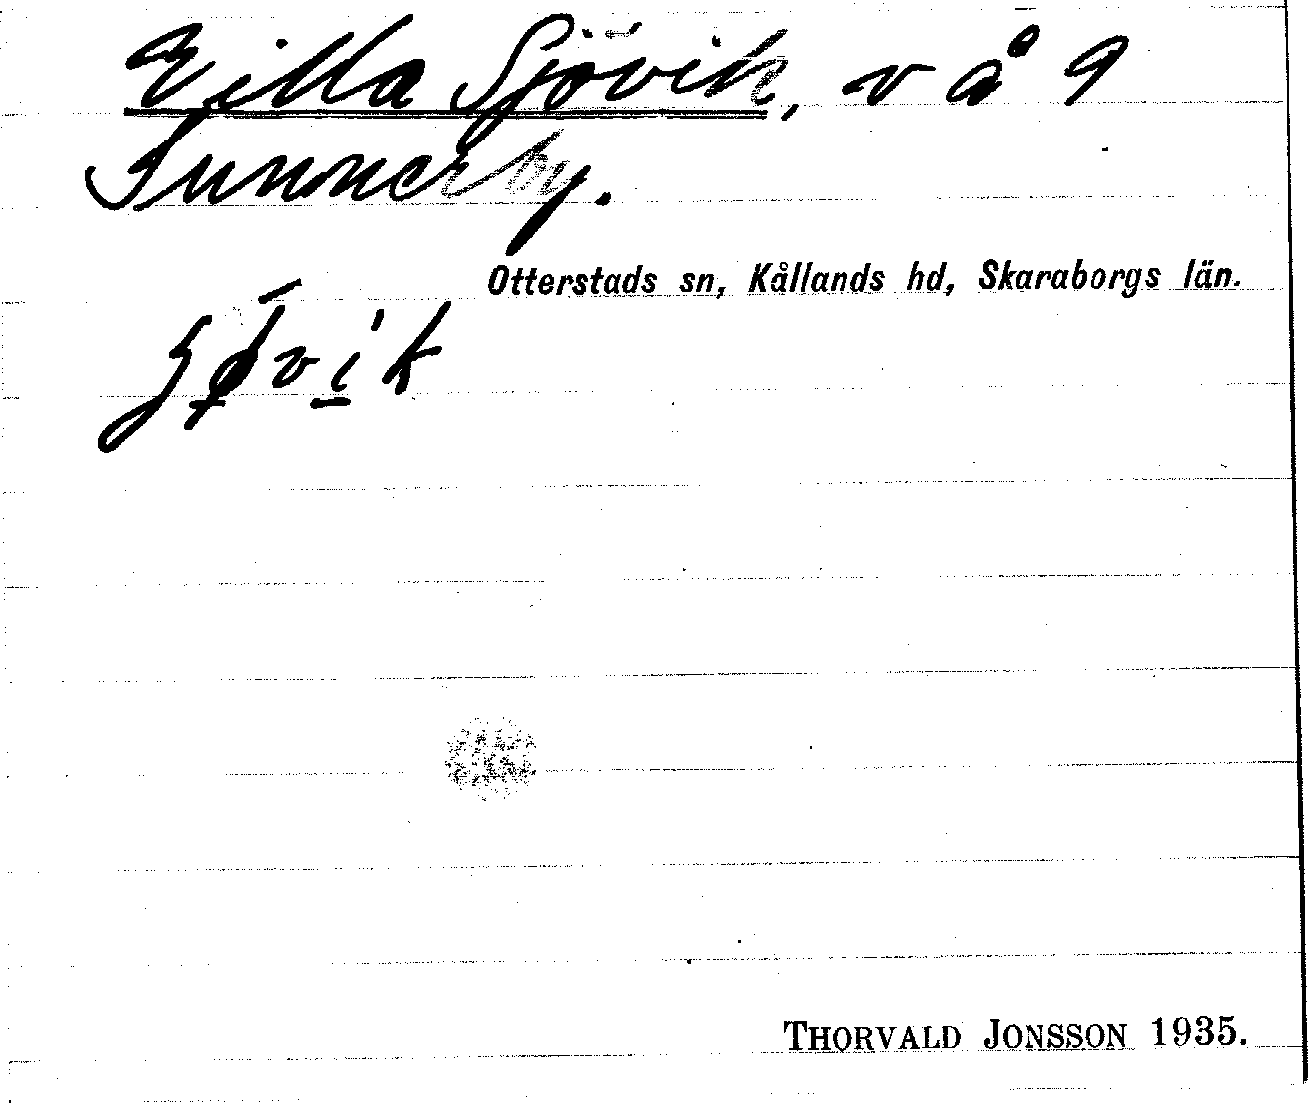 Villa Sjövik, vå 9
Sunnerby.
Otterstads sn, Kållands hd, Skaraborgs län.
THORVALD JONSSON 1935.